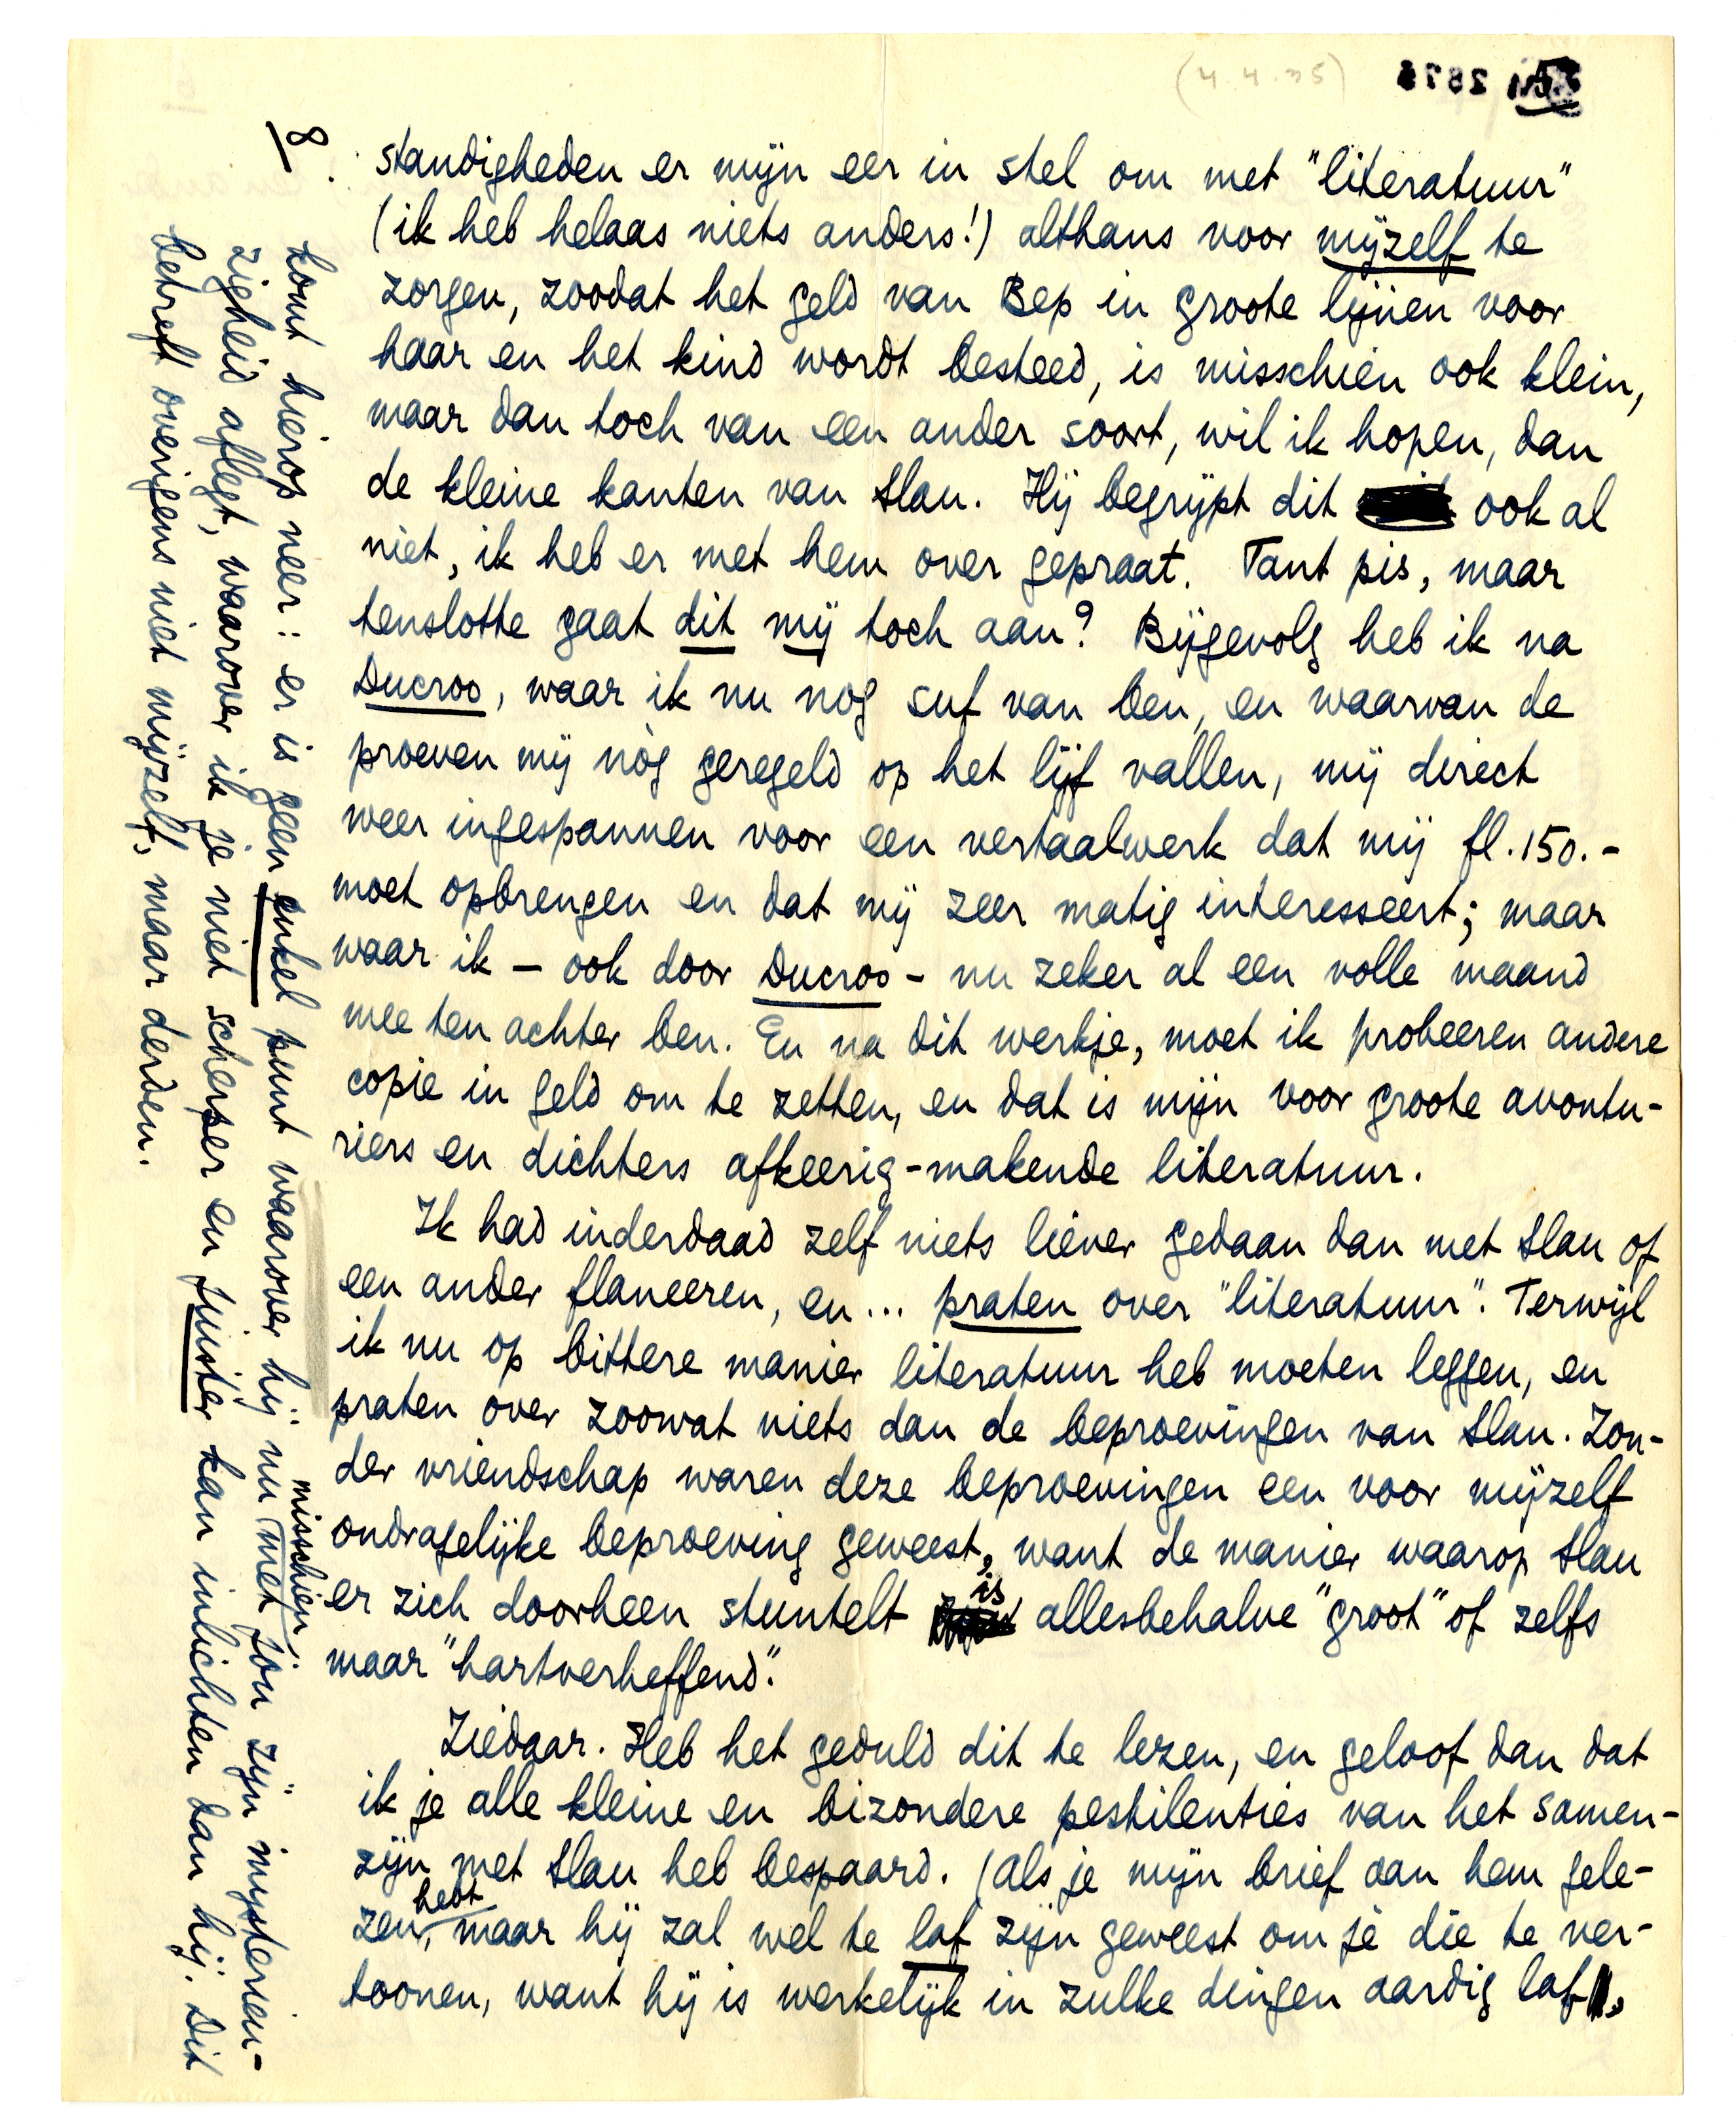 (4.4.35)
8.
standigheden er mijn eer in stel om met "literatuur"
(ik heb helaas niets anders!) althans voor mijzelf te
zorgen, zoodat het geld van Bep in groote lijnen voor
haar en het kind wordt besteed, is misschien ook klein,
maar dan toch van een ander soort, wil ik hopen, dan
de kleine kanten van Slau. Hij begrijpt dit ook al
niet, ik heb er met hem over gepraat. Tant pis, maar
tenslotte gaat dit mij toch aan? Bijgevolg heb ik na
Ducroo, waar ik nu nog suf van ben, en waarvan de
proeven mij nòg geregeld op het lijf vallen, mij direct
weer ingespannen voor een vertaalwerk dat mij fl.150.-
moet opbrengen en dat mij zeer matig interesseert; maar
waar ik - ook door Ducroo - nu zeker al een volle maand
mee ten achter ben. En na dit werkje, moet ik probeeren andere
copie in geld om te zetten, en dat is mijn voor groote avontu-
riers en dichters afkeerig-makende literatuur.
Ik had inderdaad zelf niets liever gedaan dan met Slau of
een ander flaneeren, en... praten over "literatuur". Terwijl
ik nu op bittere manier literatuur heb moeten leggen, en
praten over zoowat niets dan de beproevingen van Slau. Zon-
der vriendschap waren deze beproevingen een voor mijzelf
ondragelijke beproeving geweest, want de manier waarop Slau
er zich doorheen stuntelt is allesbehalve "groot" of zelfs
maar "hartverheffend".
Ziedaar. Heb het geduld dit te lezen, en geloof dan dat
ik je alle kleine en bizondere pestilenties van het samen-
zijn met Slau heb bespaard. (Als je mijn brief aan hem gele-
zen hebt, maar hij zal wel te laf zijn geweest om je die te ver-
toonen, want hij is werkelijk in zulke dingen aardig laf,
komt hierop neer: er is geen enkel punt waarover hij nu misschien met jou zijn mysterieu-
zigheid aflegt, waarover ik je niet scherper en juister kan inlichten dan hij. Dit
betreft overigens niet mijzelf, maar derden.